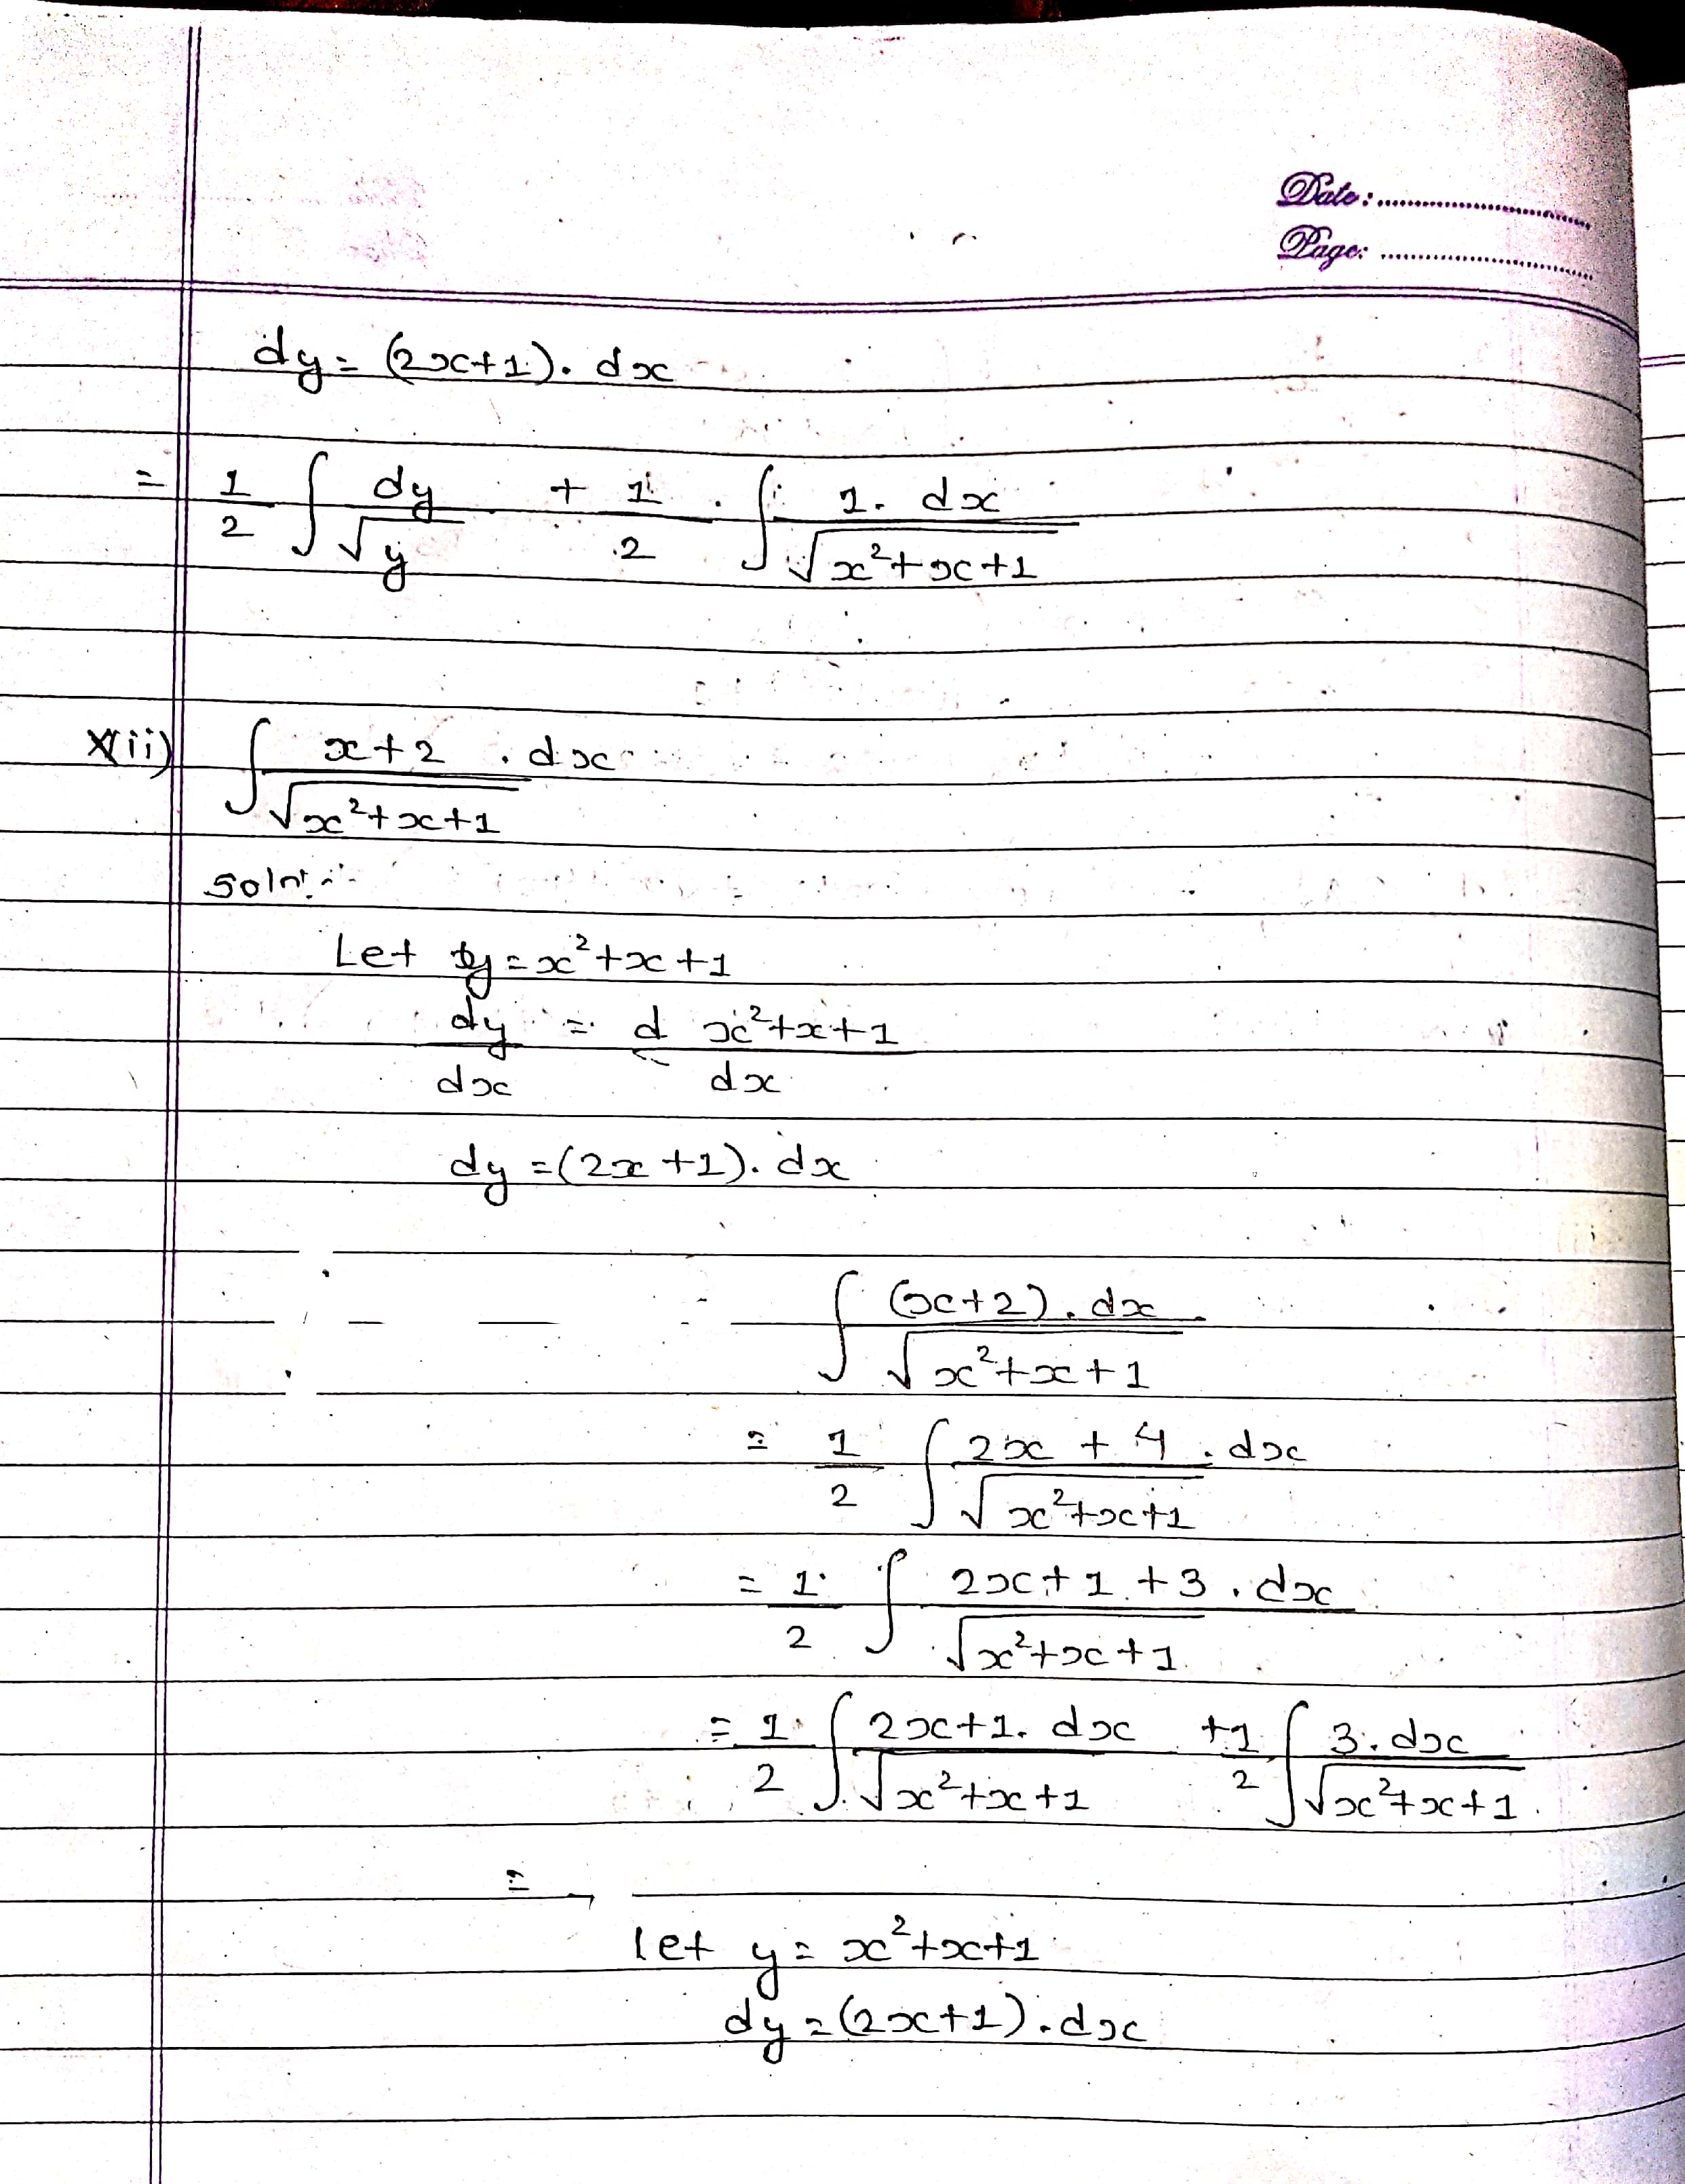 Date:
Page:
dy = (2x+1). dx
= 1/2 ∫ dy/√y + 1/2 . ∫ 1. dx/√(x²+x+1)
x(ii) ∫ x+2/√(x²+x+1) . dx
Soln:-
Let y = x²+x+1
dy/dx = d x²+x+1/dx
dy = (2x+1). dx
∫ (x+2). dx/√(x²+x+1)
= 1/2 ∫ 2x + 4/√(x²+x+1) . dx
= 1/2 ∫ 2x+1+3/√(x²+x+1) . dx
= 1/2 ∫ 2x+1. dx/√(x²+x+1) + 1/2 ∫ 3. dx/√(x²+x+1)
=
let y = x²+x+1
dy = (2x+1). dx